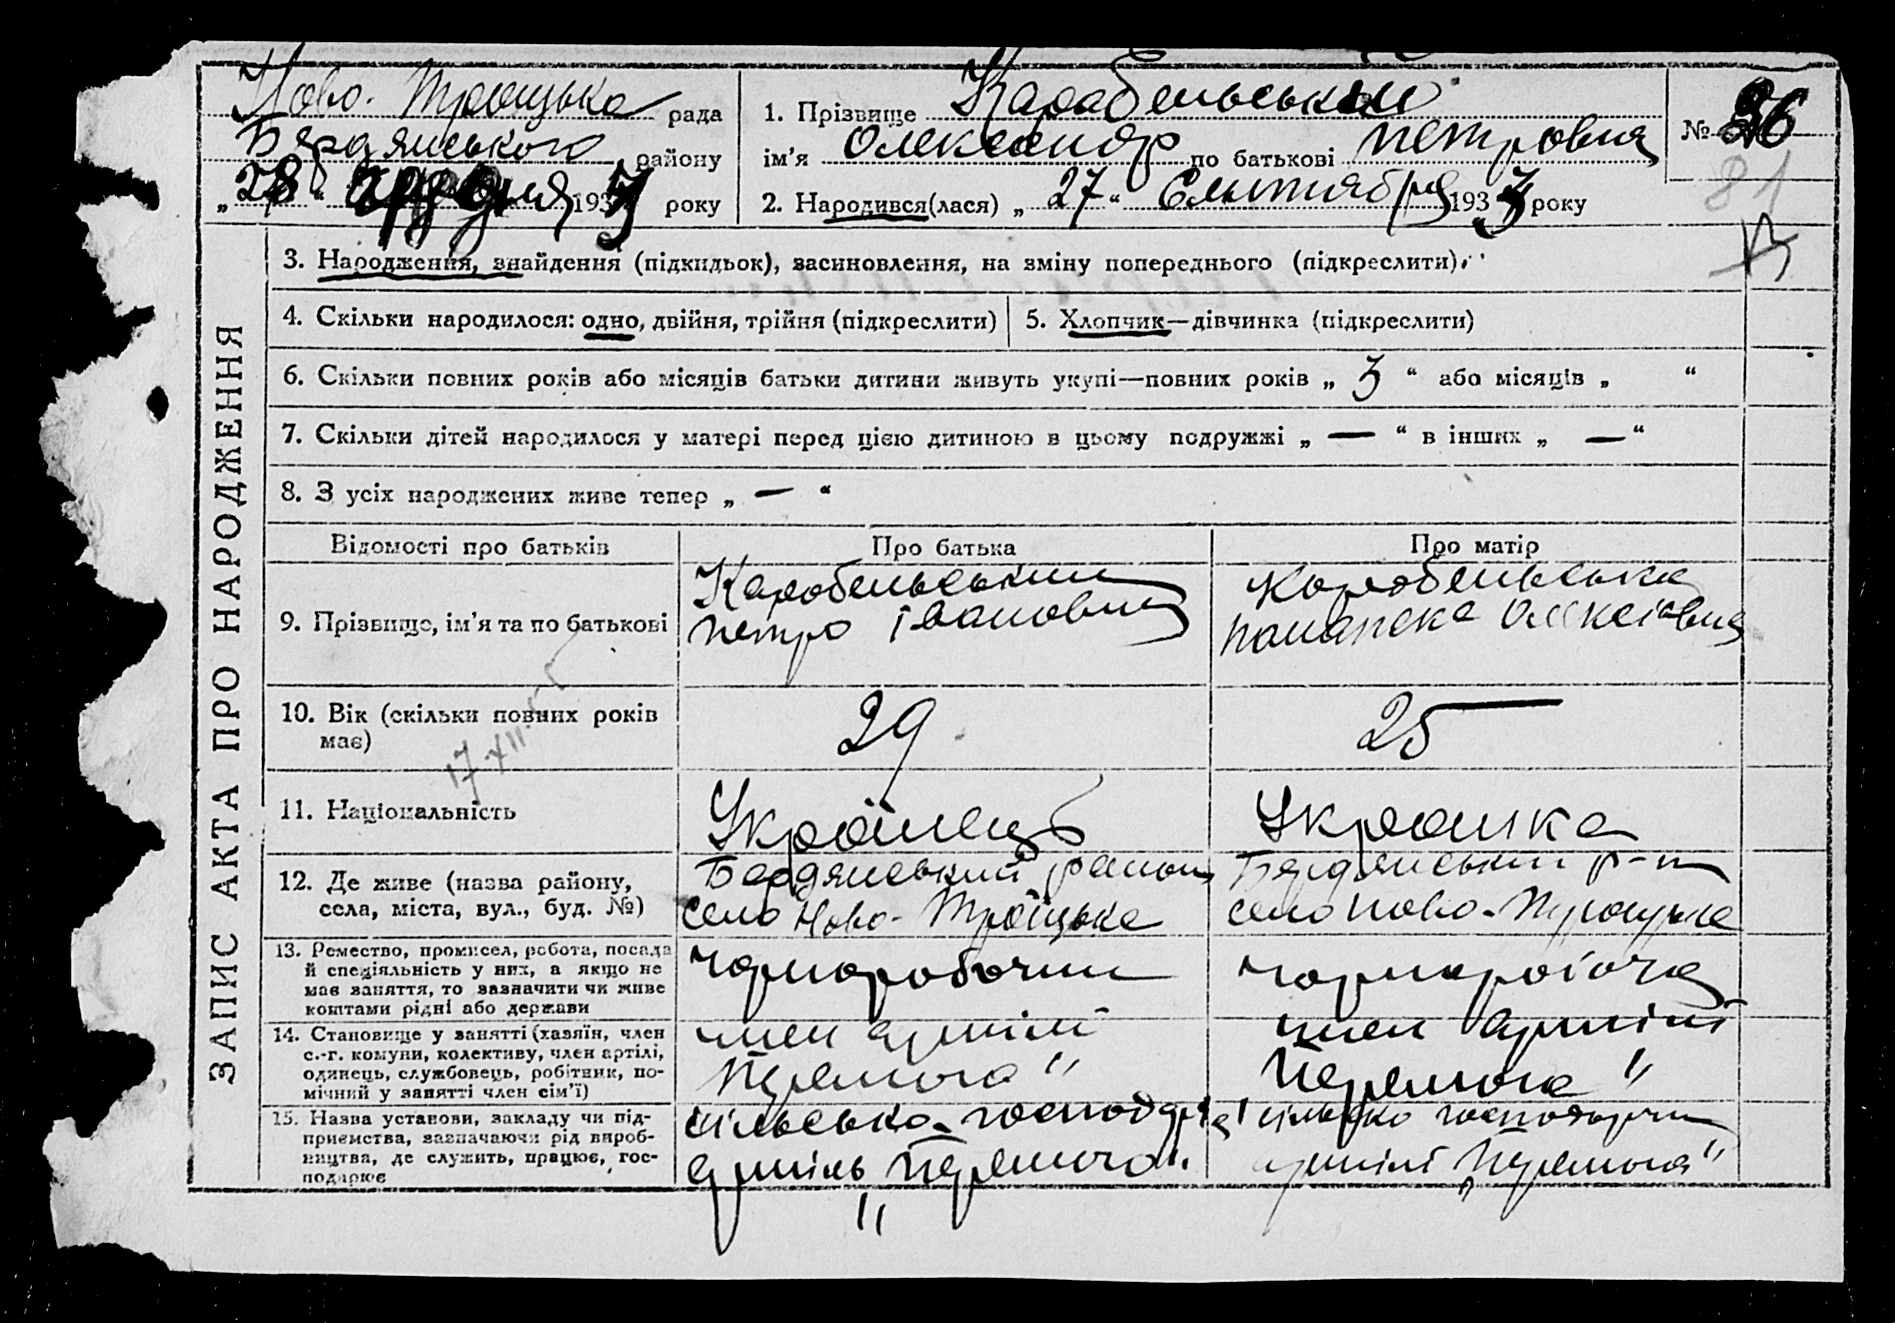 Ново-Троіцька рада
Бердянського району
„28“ грудня 1933 року
1. Прізвище Карабельський
ім'я Олександр по батькові Петрович
2. Народився(лася) „27“ Сентября 1933 року
№ 26
81
3. Народження, знайдення (підкидьок), засиновлення, на зміну попереднього (підкреслити).
4. Скільки народилося: одно, двійня, трійня (підкреслити)
5. Хлопчик—дівчинка (підкреслити)
6. Скільки повних років або місяців батьки дитини живуть укупі—повних років „3“ або місяців „ “
7. Скільки дітей народилося у матері перед цією дитиною в цьому подружжі „—“ в інших „—“
8. З усіх народжених живе тепер „—“
ЗАПИС АКТА ПРО НАРОДЖЕННЯ
Відомості про батьків
Про батька
Про матір
9. Прізвище, ім'я та по батькові
Карабельський
Петро Іванович
Карабельська
Олексіевна
10. Вік (скільки повних років
має)
29
25
17 XII
11. Національність
Українець
Украинка
12. Де живе (назва району,
села, міста, вул., буд. №)
Бердянський район
село Ново-Троїцьке
Бердянський р-н
село Ново-Троицьке
13. Ремество, промисел, робота, посада
й спеціяльність у них, а якщо не
має заняття, то зазначити чи живе
коштами рідні або держави
чорноробочий
чорноробоча
14. Становище у занятті (хазяїн, член
с.-г. комуни, колективу, член артілі,
одинець, службовець, робітник, по-
мічний у занятті член сім'ї)
член артілі
Перемога"
член артілі
Перемога"
15. Назва установи, закладу чи під-
приємства, зазначаючи рід вироб-
ництва, де служить, працює, гос-
подарює
сільсько-господар
артіль „Перемога"
сільсько господарчи
артілі „Перемога"